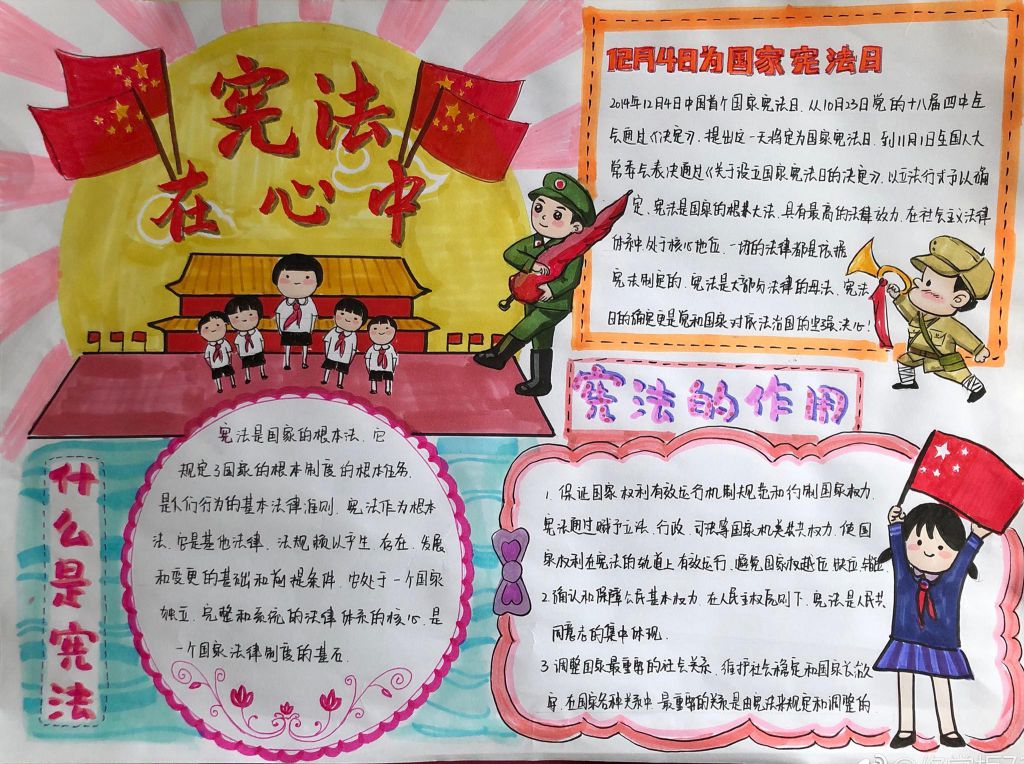 宪法
在心中
12月4日为国家宪法日
2014年12月4日中国首个国家宪法日、从10月23日党的十八届四中全
会通过《决定》、提出这一天将定为国家宪法日、到11月1日全国人大
常委会表决通过《关于设立国家宪法日的决定》、以立法形式予以确
定、宪法是国家的根本大法、具有最高的法律效力、在社会主义法律
体系中处于核心地位、一切的法律都是依据
宪法制定的、宪法是大部分法律的母法、宪法
日的确定更是党和国家对依法治国的坚强决心!
什么是宪法
宪法是国家的根本法、它
规定了国家的根本制度的根本任务、
是人们行为的基本法律准则、宪法作为根本
法、它是其他法律、法规赖以产生、存在、发展
和变更的基础和前提条件、它处于一个国家
独立、完整和系统的法律体系的核心、是
一个国家法律制度的基石
宪法的作用
1.保证国家权利有效运行机制规范和约制国家权力、
宪法通过赋予立法、行政、司法等国家机关公共权力、使国
家权利在宪法的轨道上有效运行、避免国家权越位 缺位 错位
2.确认和保障公民基本权力、在人民主权原则下、宪法是人民共
同意志的集中体现、
3.调整国家最重要的社会关系、维护社会稳定和国家长治久
安、在国家各种关系中、最重要的关系是由宪法来规定和调整的